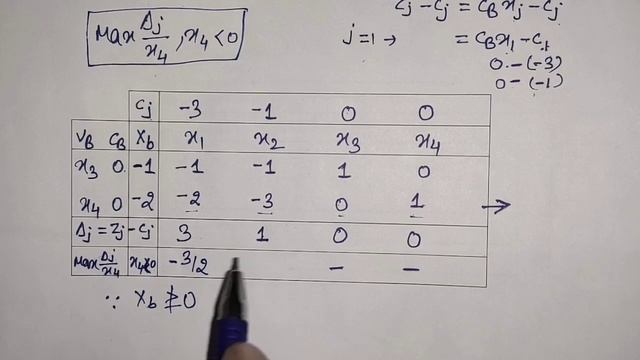 Max Δj/x4 , x4 < 0
Cj - Cj = CB xj - Cj
j = 1 → = CB x1 - C1
0 - (-3)
0 - (-1)
Cj -3 -1 0 0
VB CB Xb x1 x2 x3 x4
x3 0 -1 -1 -1 1 0
x4 0 -2 -2 -3 0 1 →
Δj = Zj - Cj 3 1 0 0
Max Δj/x4 -3/2 - -
∵ Xb ≱ 0